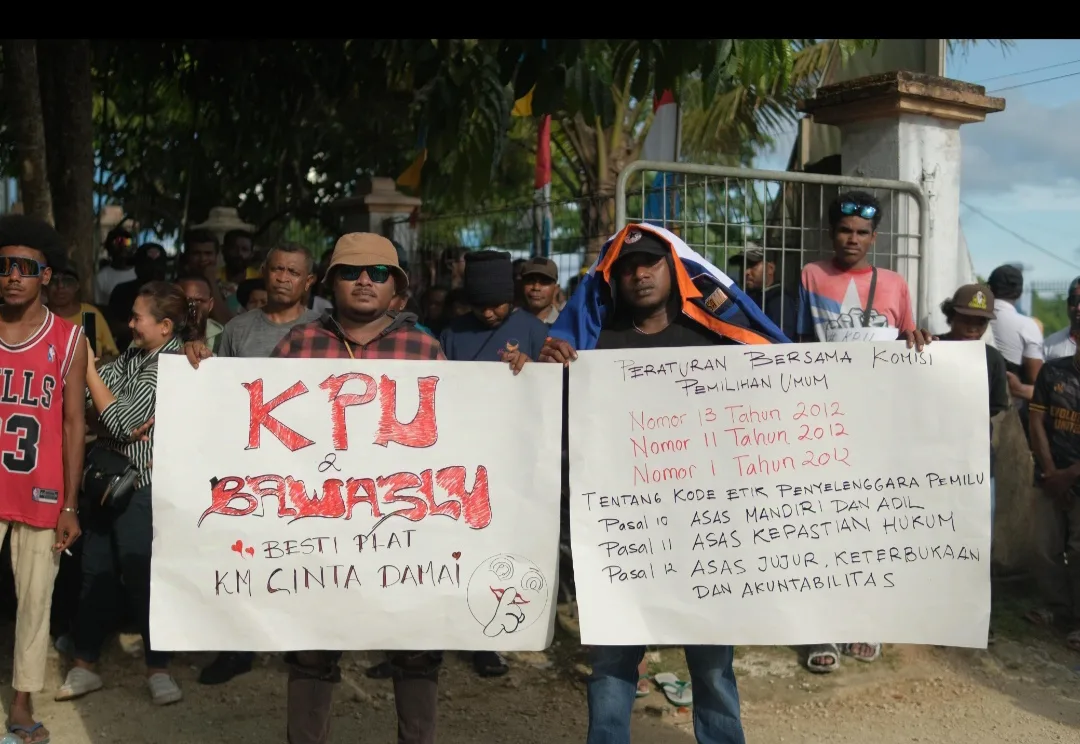 KPU
&
BAWASLU
BESTI PLAT
KM CINTA DAMAI
PERATURAN BERSAMA KOMISI
PEMILIHAN UMUM
Nomor 13 Tahun 2012
Nomor 11 Tahun 2012
Nomor 1 Tahun 2012
TENTANG KODE ETIK PENYELENGGARA PEMILU
Pasal 10 ASAS MANDIRI DAN ADIL
Pasal 11 ASAS KEPASTIAN HUKUM
Pasal 12 ASAS JUJUR, KETERBUKAAN
DAN AKUNTABILITAS